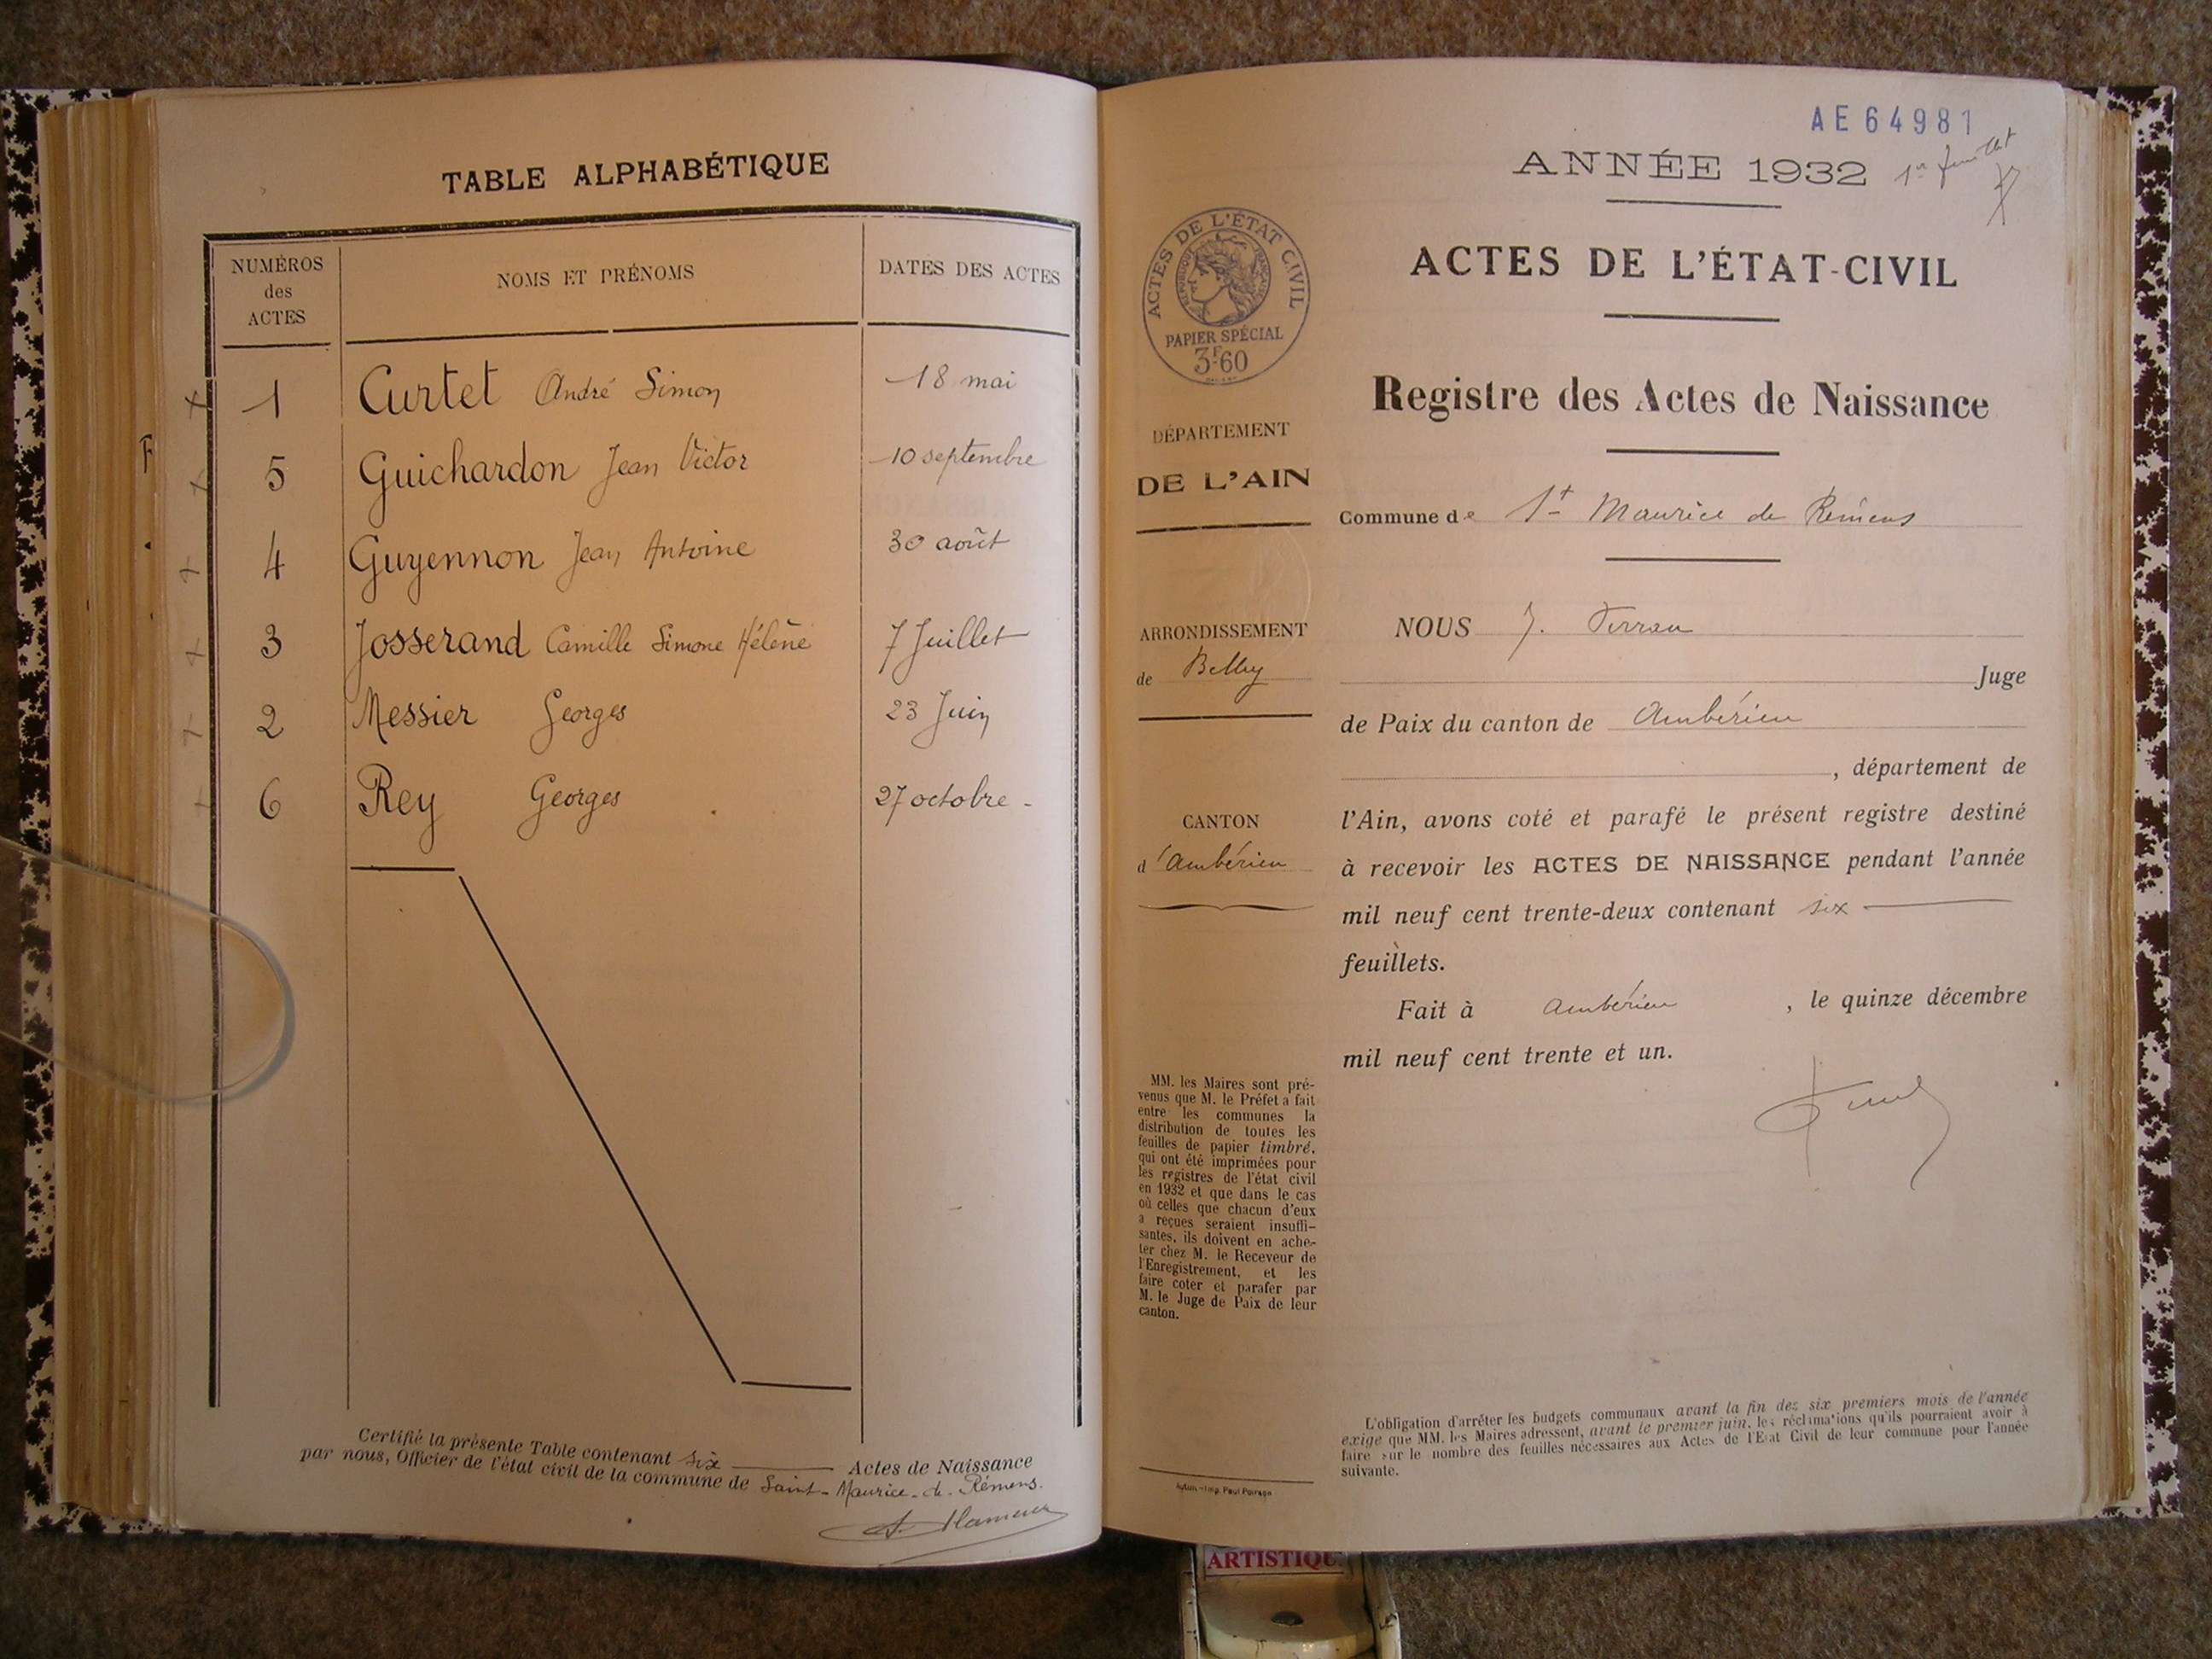 TABLE ALPHABÉTIQUE
NUMÉROS
des
ACTES
NOMS ET PRÉNOMS
DATES DES ACTES
1 Curtet André Simon 18 mai
5 Guichardon Jean Victor 10 septembre
4 Guyennon Jean Antoine 30 août
3 Josserand Camille Simone Hélène 7 Juillet
2 Messier Georges 23 Juin
6 Rey Georges 27 octobre -
Certifié la présente Table contenant six Actes de Naissance
par nous, Officier de l'état civil de la commune de Saint-Maurice-de-Rémens.
AE 64981
ANNÉE 1932 1er feuillet
ACTES DE L'ÉTAT CIVIL
RÉPUBLIQUE FRANÇAISE
PAPIER SPÉCIAL
3F60
ACTES DE L'ÉTAT-CIVIL
Registre des Actes de Naissance
DÉPARTEMENT
DE L'AIN
Commune de St Maurice de Rémens
ARRONDISSEMENT
de Belley
CANTON
d'Ambérieu
NOUS J.
Juge
de Paix du canton de Ambérieu
, département de
l'Ain, avons coté et parafé le présent registre destiné
à recevoir les ACTES DE NAISSANCE pendant l'année
mil neuf cent trente-deux contenant six
feuillets.
Fait à Ambérieu , le quinze décembre
mil neuf cent trente et un.
MM. les Maires sont pré-
venus que M. le Préfet a fait
entre les communes la
distribution de toutes les
feuilles de papier timbré,
qui ont été imprimées pour
les registres de l'état civil
en 1932 et que dans le cas
où celles que chacun d'eux
a reçues seraient insuffi-
santes, ils doivent en ache-
ter chez M. le Receveur de
l'Enregistrement, et les
faire coter et parafer par
M. le Juge de Paix de leur
canton.
L'obligation d'arrêter les budgets communaux avant la fin des six premiers mois de l'année
exige que MM. les Maires adressent, avant le premier juin, les réclamations qu'ils pourraient avoir à
faire sur le nombre des feuilles nécessaires aux Actes de l'Etat Civil de leur commune pour l'année
suivante.
ARTISTIQU